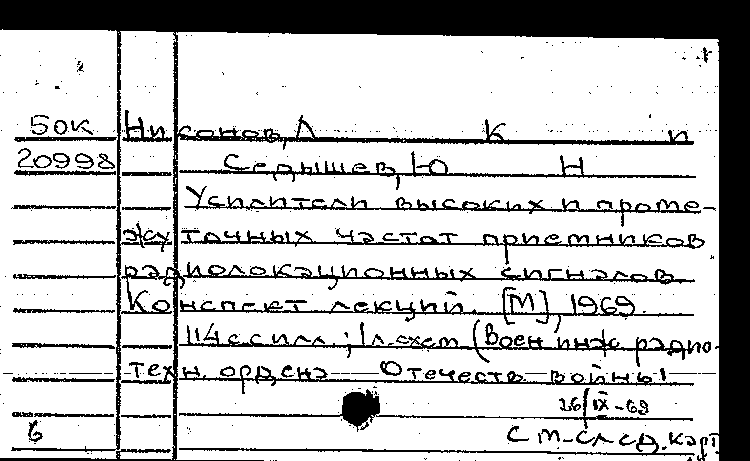 50К Нисонов, Л К и
20998 Седышев, Ю Н
Усилители высоких и проме-
жуточных частот приемников
радиолокационных сигналов
Конспект лекций. [М], 1969.
114 с с илл.; 1 л. схем (Воен инж радио-
техн. ордена Отечеств войны
26/IX-69
6 См-след. карт